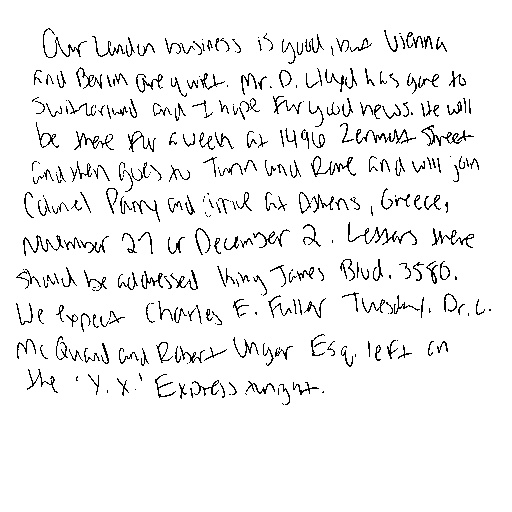 Our London business is good, but Vienna
and Berlin are quiet. Mr. D. Lloyd has gone to
Switzerland and I hope for good news. He will
be there for a week at 1496 Zermott Street
and then goes to Turin and Rome and will join
Colonel Parry and arrive at Athens, Greece,
November 27 or December 2. Letters there
should be addressed King James Blvd. 3580.
We expect Charles E. Fuller Tuesday. Dr. L.
McQuaid and Robert Unger Esq. left on
the 'Y.X.' Express tonight.